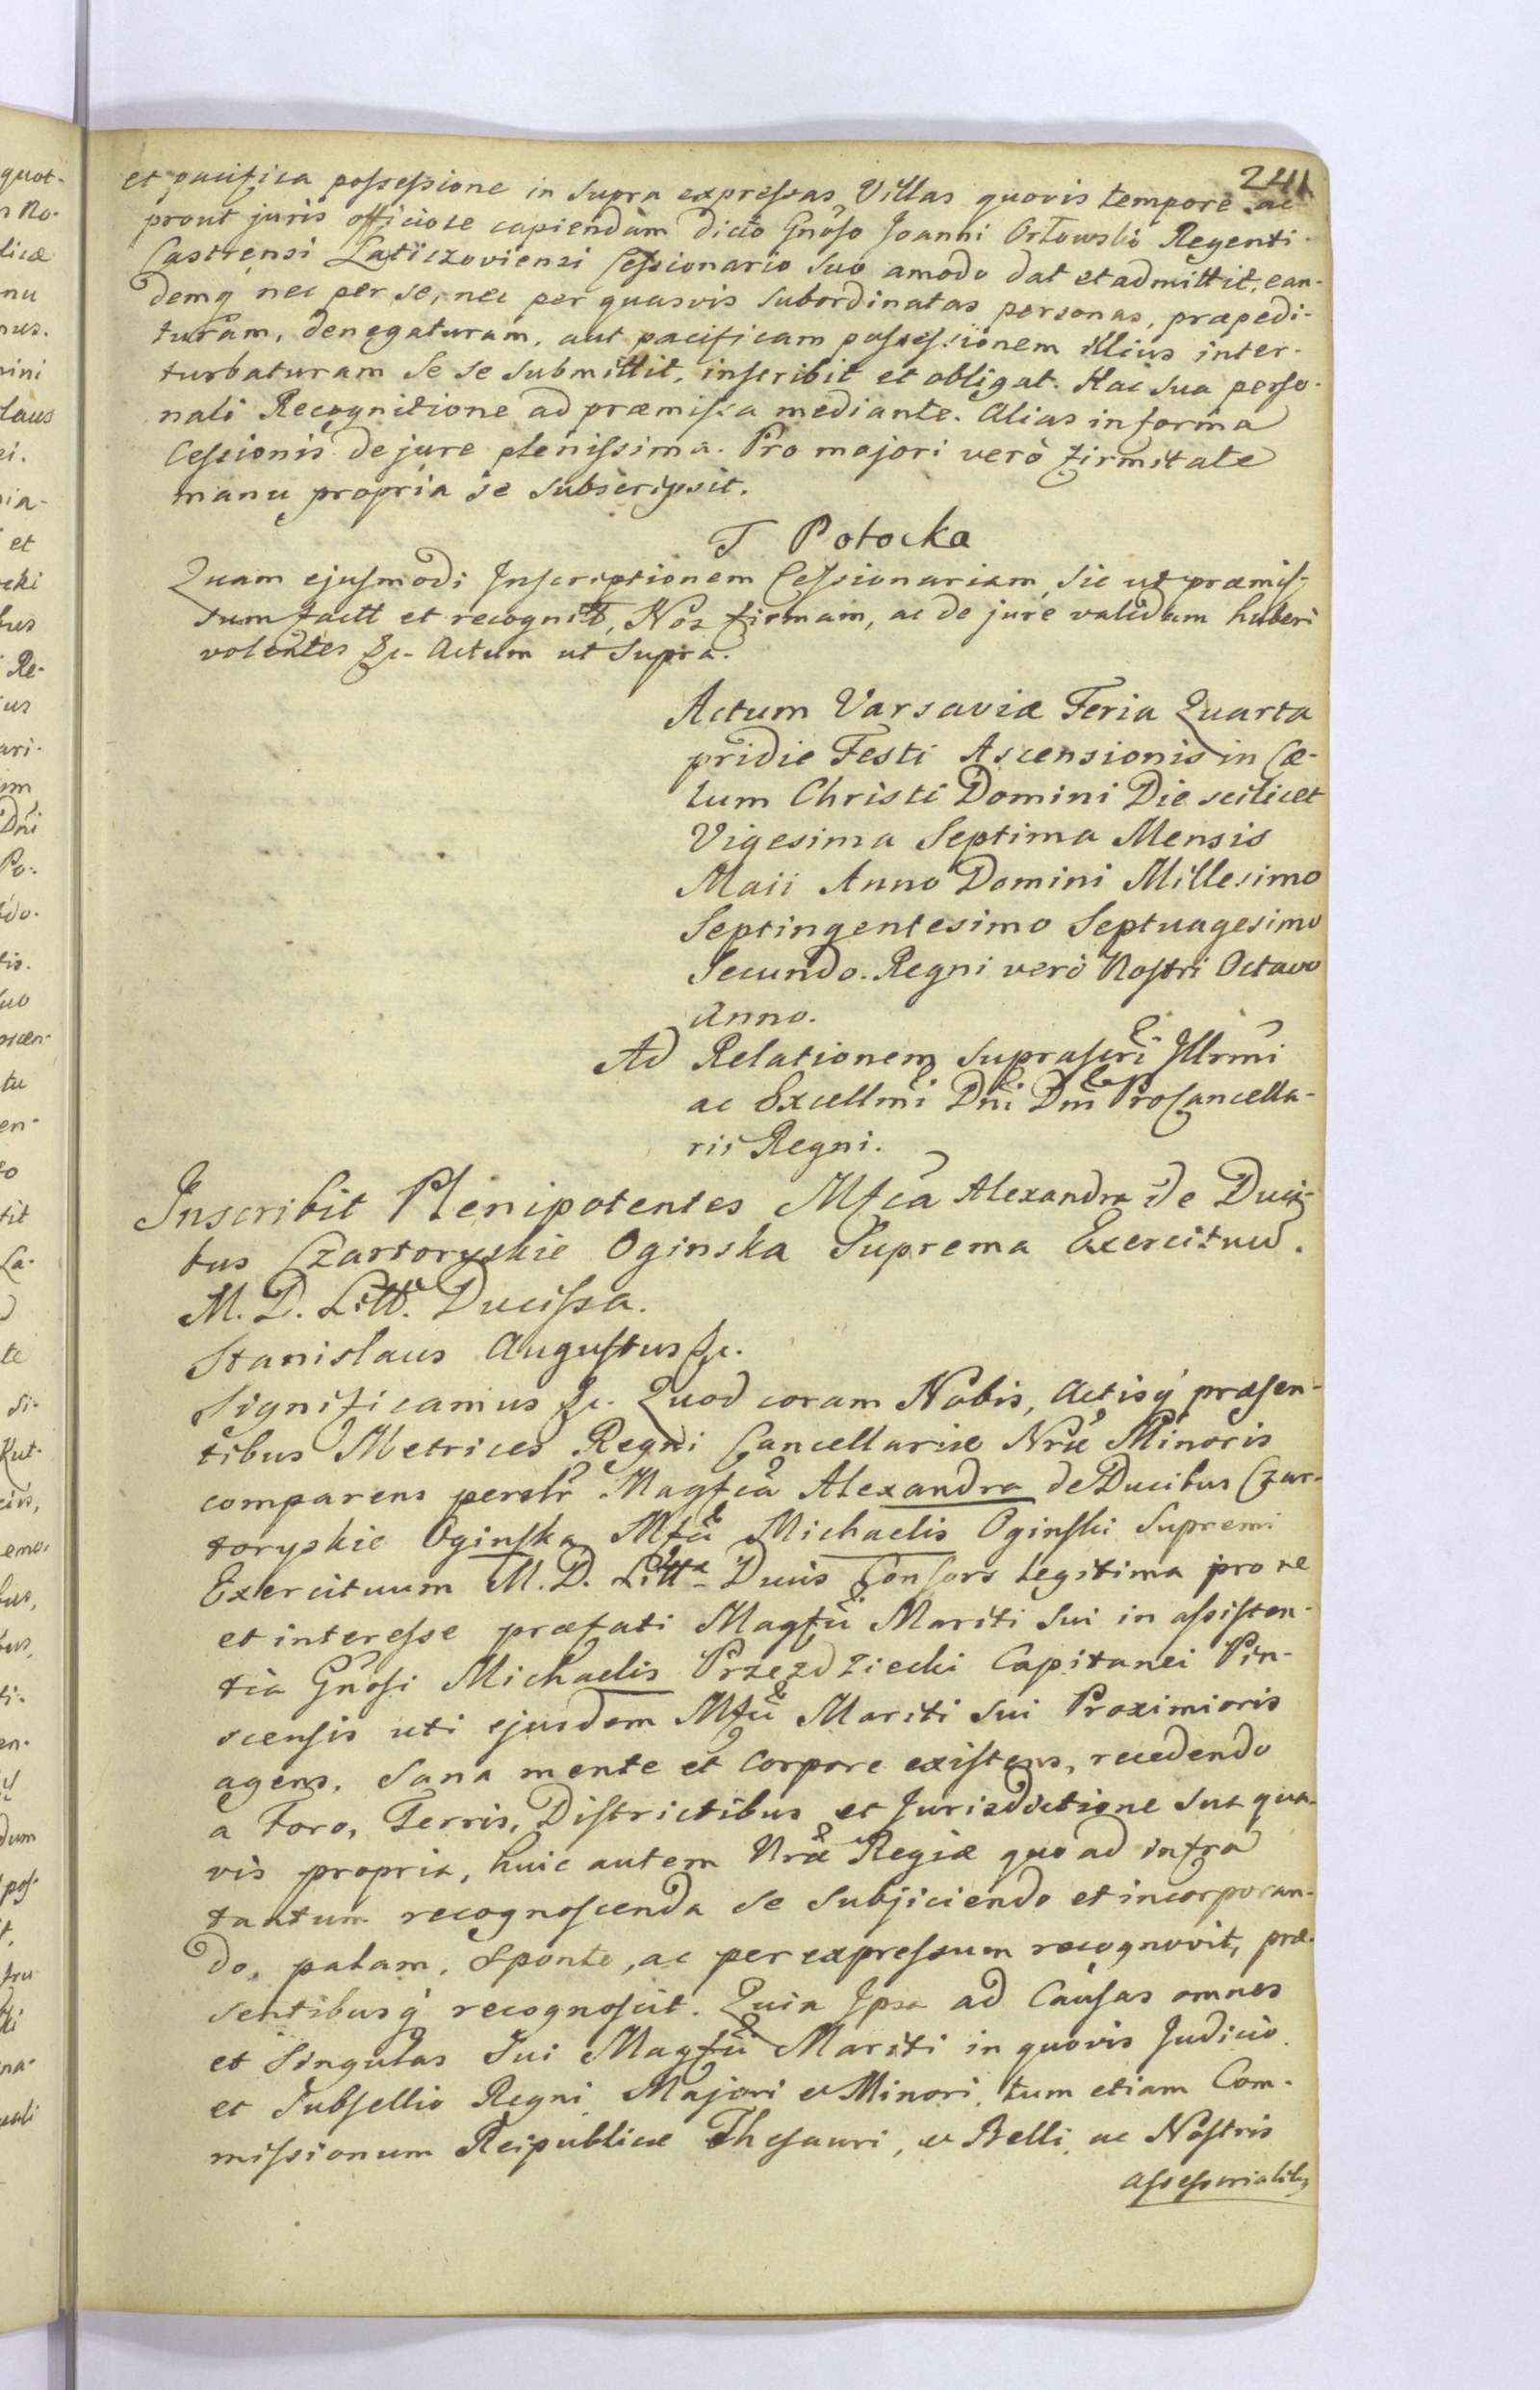 241
et pacifica possessione in supra expressas Villas quovis tempore ac
prout juris officiose capiendam dicto Gnōso Joanni Orłowski Regenti
Castrensi Laticzoviensi Cessionario suo amodo dat et admittit, ean-
demq́ nec per se, nec per quasvis subordinatas personas, præpedi-
turam, denegaturam, aut pacificam possessionem illius inter-
turbaturam se se submittit, inscribit et obligat. Hac sua perso-
nali Recognitione ad præmissa mediante. Alias in forma
Cessionis de jure plenissima. Pro majori verò firmitate
manu propria se subscripsit.
T Potocka
Quam ejusmodi Inscriptionem Cessionariam, sic ut præmis-
sum factt et recognit, Nos firmam, ac de jure validam haberi
volentes &c. Actum ut supra.
Actum Varsaviæ Feria Quarta
pridie Festi Ascensionis in Cæ-
lum Christi Domini Die scilicet
Vigesima Septima Mensis
Maii Anno Domini Millesimo
Septingentesimo Septuagesimo
Secundo. Regni verò Nostri Octavo
Anno.
Ad Relationem suprascri Illrmi
ac Excellmi Dni Dni ProCancella-
rii Regni.
Inscribit Plenipotentes Mfca Alexandra de Duci-
bus Czartoryskie Oginska Suprema Exercituū.
M. D. Litt. Ducissa.
Stanislaus Augustus &c.
Significamus &c. Quod coram Nobis, Actisq́ præsen-
tibus Metrices Regni Cancellariæ Nræ Minoris
comparens persłr Magfca Alexandra de Ducibus Czar-
toryskie Oginska Mfci Michaelis Oginski Supremi
Exercituum M. D. Litt. Ducis Consors legitima pro re
et interesse præfati Magfci Mariti sui in assisten-
tia Gnosi Michaelis Przezdziecki Capitanei Pin-
scensis uti ejusdem Mfci Mariti sui Proximioris
agens, sana mente et corpore existens, recedendo
a Foro, Terris, Districtibus et Jurisdictione sua qua-
vis propria, huic autem Nræ Regiæ quo ad infra
tantum recognoscenda se subjiciendo et incorporan-
do, palam, sponte, ac per expressum recognovit, præ-
sentibusq́ recognoscit. Quia Ipsa ad Causas omnes
et singulas sui Magfci Mariti in quovis Judicio
et Subsellio Regni Majori et Minori, tum etiam Com-
missionum Reipublicæ Thesauri, et Belli, ac Nostris
assessorialibq